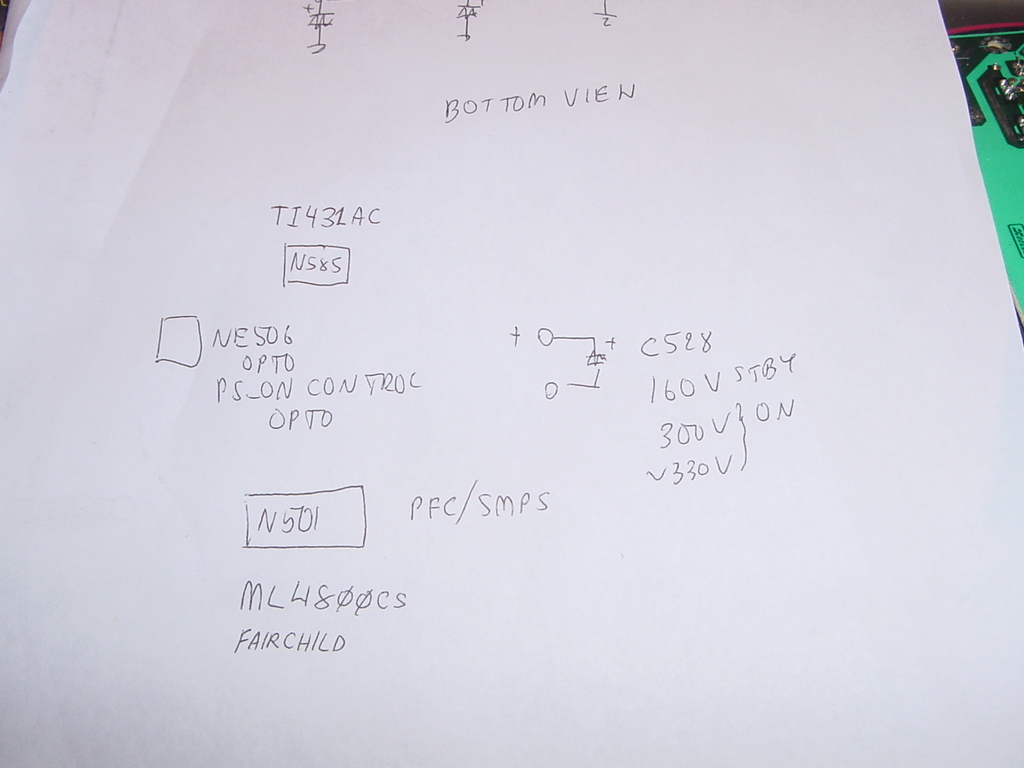 2
BOTTOM VIEW
TI431AC
N585
NE506
OPTO
PS_ON CONTROL
OPTO
+ + C528
160V STBY
300V } ON
~330V
N501 PFC/SMPS
ML4800CS
FAIRCHILD